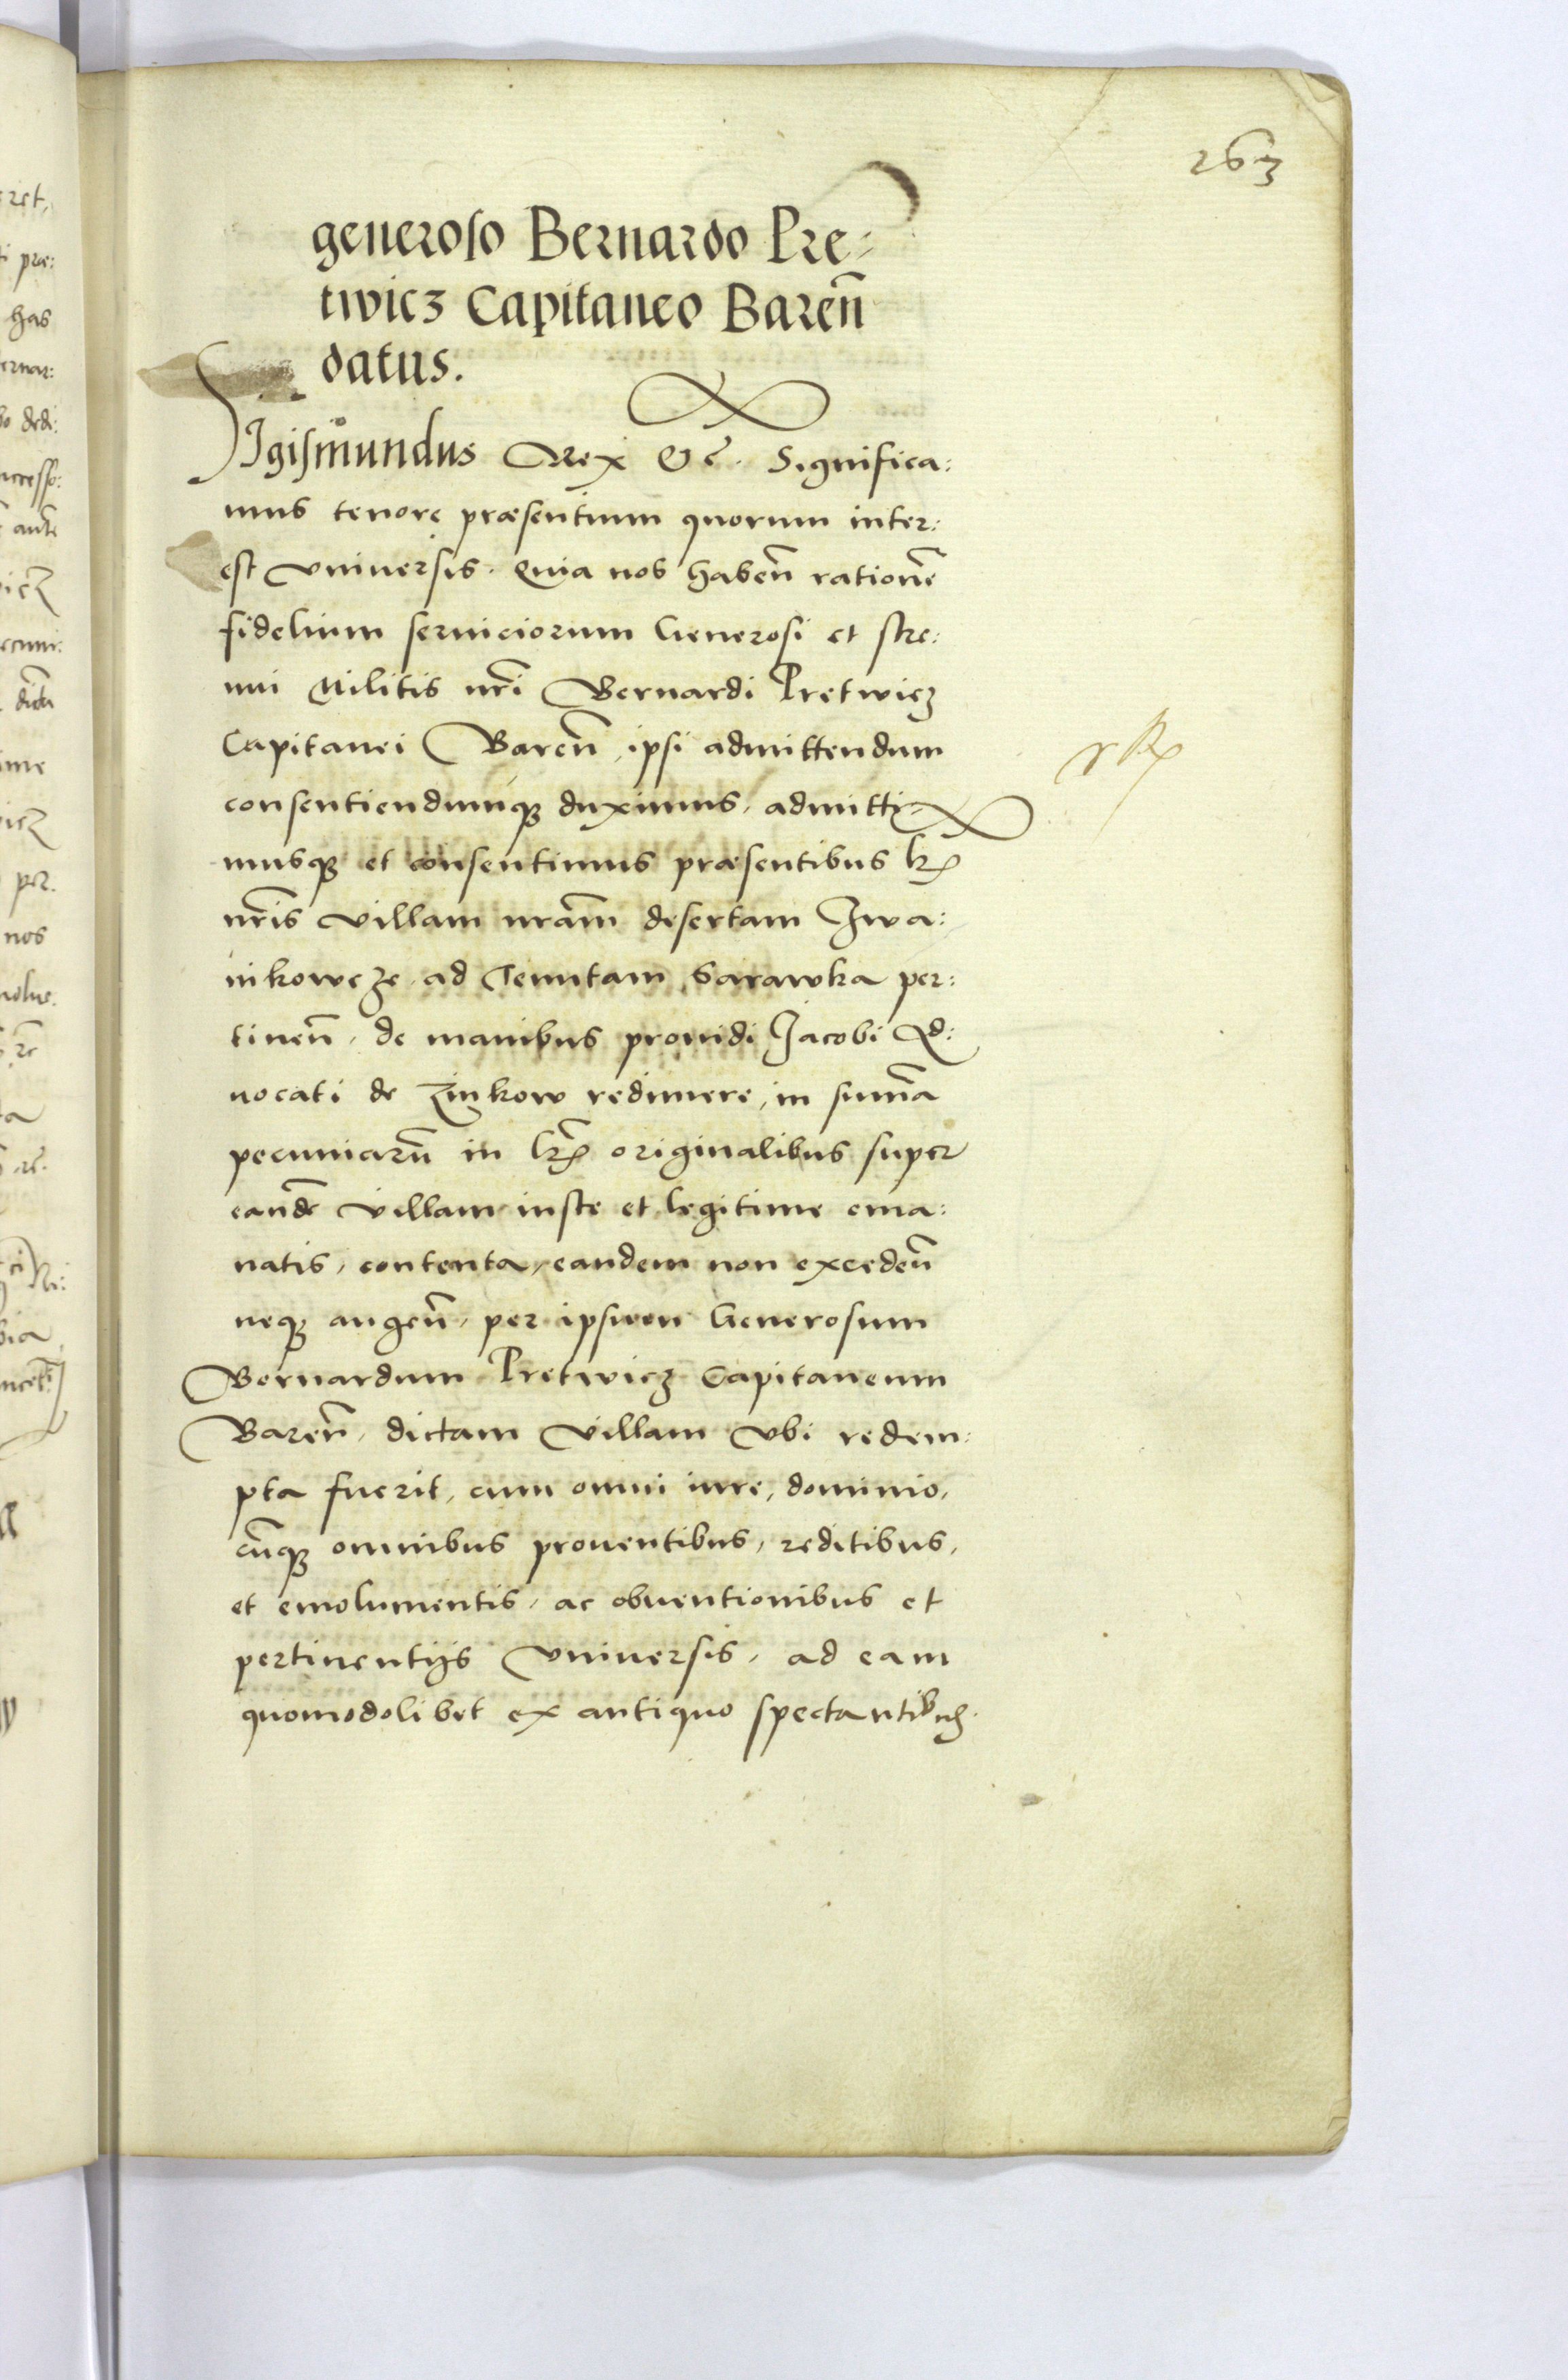 263
generoso Bernardo Pre-
twicz Capitaneo Bareñ
datus.
Sigismundus Rex &c. Significa:
mus tenore præsentium quorum inter:
est Vniuersis. Quia nos habeñ rationē
fidelium seruiciorum Generosi et stre:
nui Militis nr̃i Bernardi Pretwicz
Capitanei Bareñ, ipsi admittendum
consentiendumq; duximus, admitti-
musq; et consentimus præsentibus lr̃is
nr̃is Villam nr̃am desertam Iwa:
nikowcze ad Tenutam Sarawka per:
tineñ, de manibus prouidi Jacobi Ad:
uocati de Zinkow redimere, in sum̃a
pecuniarũ in lr̃is originalibus super
eandē Villam iuste et legitime ema:
natis, contenta, eandem non excedeñ
neq; augeñ, per ipsum Generosum
Bernardum Pretwicz Capitaneum
Bareñ, dictam Villam Vbi redem:
pta fuerit, cum omni iure, dominio,
cũq; omnibus prouentibus, reditibus,
et emolumentis, ac obuentionibus et
pertinentijs Vniuersis, ad eam
quomodolibet ex antiquo spectantibus